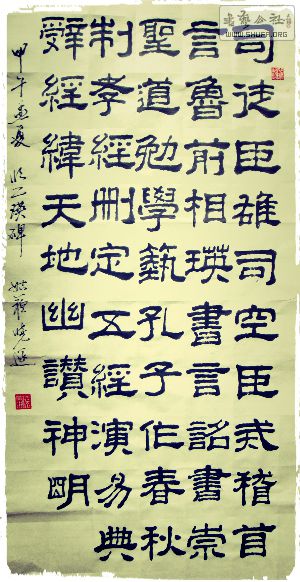 书艺公社
WWW.SHUFA.ORG
司徒臣雄司空臣戒稽首
言魯前相瑛書言詔書崇
聖道勉學藝孔子作春秋
制孝經刪定五經演易典
辭經緯天地幽讚神明
甲午孟夏臨乙瑛碑 姑蘇曉